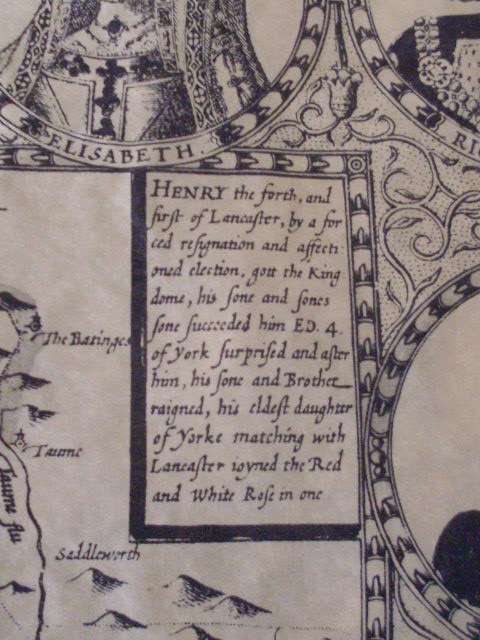 ELISABETH
RI
HENRY the forth, and
first of Lancaster, by a for
ced resignation and affecti
oned election, gott the King
dome, his sone and sones
sone succeeded him ED. 4.
of York surprised and after
him, his sone and Brother
raigned, his eldest daughter
of Yorke matching with
Lancaster ioyned the Red
and White Rose in one
The Batinges
Taume
Taume flu
Saddleworth